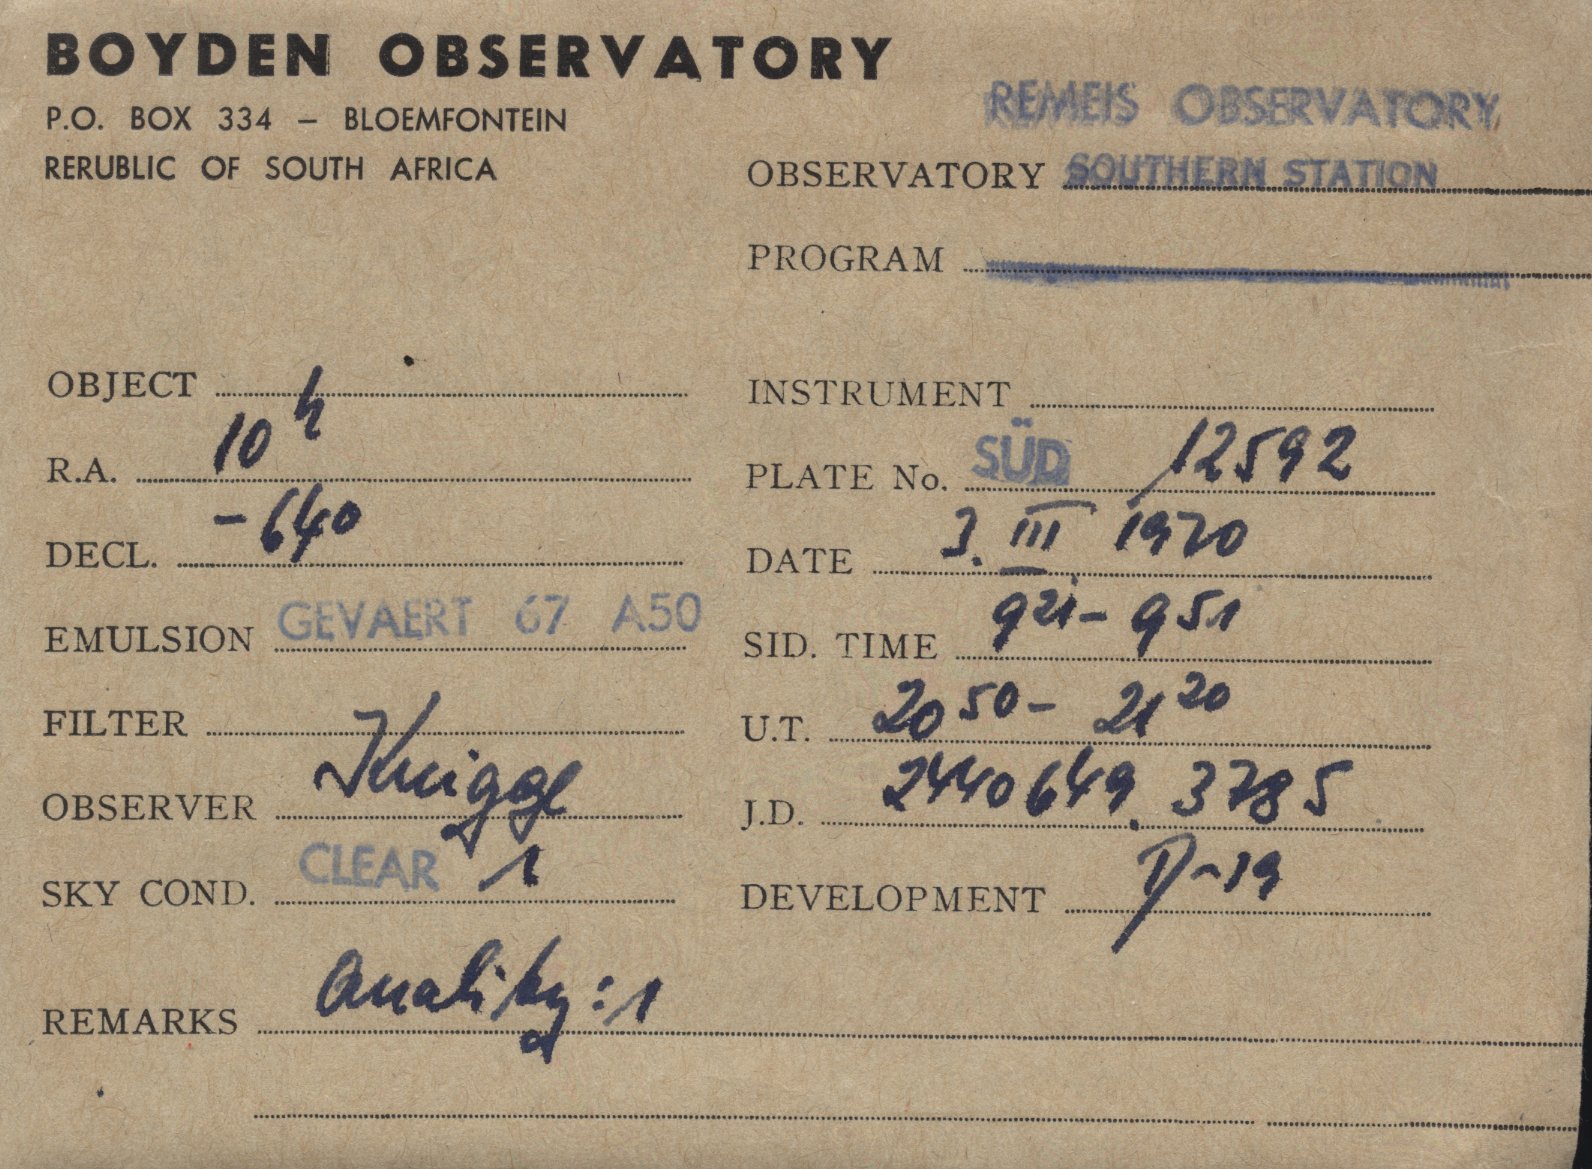 BOYDEN OBSERVATORY
P.O. BOX 334 – BLOEMFONTEIN
RERUBLIC OF SOUTH AFRICA
REMEIS OBSERVATORY
OBSERVATORY SOUTHERN STATION
PROGRAM
OBJECT
R.A. 10 h
DECL. -64°
EMULSION GEVAERT 67 A50
FILTER
OBSERVER Knigge
SKY COND. CLEAR 1
INSTRUMENT
PLATE No. SÜD 12592
DATE 3. III 1970
SID. TIME 9 21 - 9 51
U.T. 20 50 - 21 20
J.D. 2440649.3785
DEVELOPMENT D-19
REMARKS Quality: 1